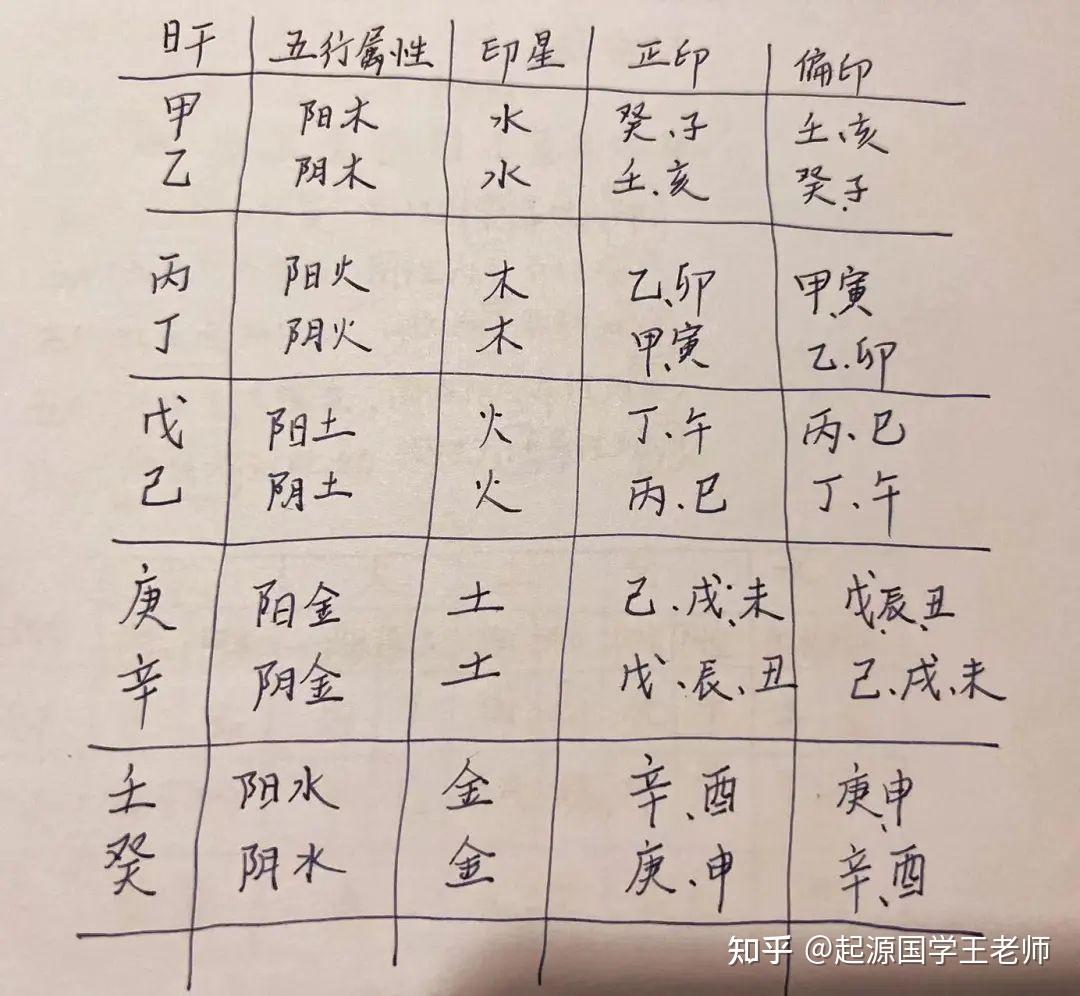 日干 五行属性 印星 正印 偏印
甲 阳木 水 癸、子 壬、亥
乙 阴木 水 壬、亥 癸、子
丙 阳火 木 乙、卯 甲、寅
丁 阴火 木 甲、寅 乙、卯
戊 阳土 火 丁、午 丙、巳
己 阴土 火 丙、巳 丁、午
庚 阳金 土 己、戌、未 戊、辰、丑
辛 阴金 土 戊、辰、丑 己、戌、未
壬 阳水 金 辛、酉 庚、申
癸 阴水 金 庚、申 辛、酉
知乎 @起源国学王老师